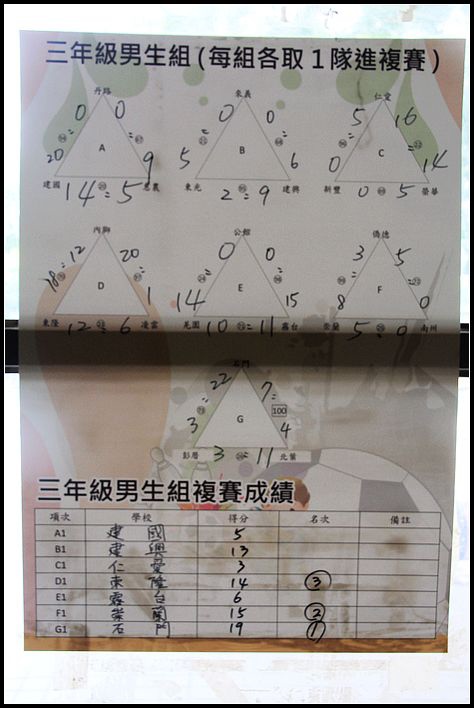 三年級男生組(每組各取1隊進複賽)
丹路 來義 仁愛
0 0 0 0 5 16
A B C
20 9 5 6 0 14
建國 14 : 5 恩農 東光 2 : 9 建興 新豐 0 5 榮華
內獅 公館 僑德
18 : 12 20 0 0 3 5
D E F
1 14 15 8 0
東隆 12 : 6 凌雲 10 : 11 霧台 紫蘭 5 : 0 南州
石門
22 7
G
100
3 4
彭厝 3 : 11 北葉
三年級男生組複賽成績
項次 學校 得分 名次 備註
A1 建國 5
B1 建興 13
C1 仁愛 3
D1 東隆 14 3
E1 霧台 6
F1 紫蘭 15 2
G1 石門 19 1